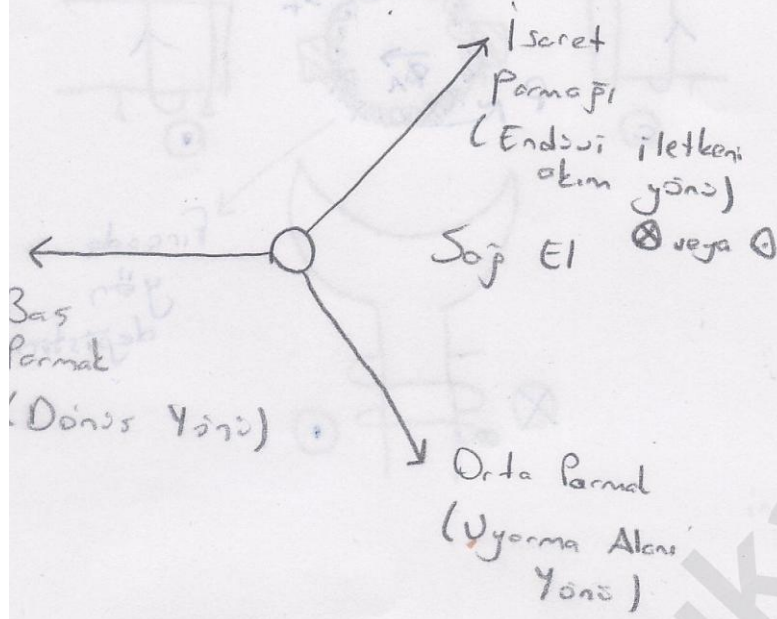 İşaret
Parmağı
(Endüvi iletkeni
akım yönü)
⊗ veya ⊙
Sağ El
Baş
Parmak
(Dönüş Yönü)
Orta Parmak
(Uyarma Alanı
Yönü)